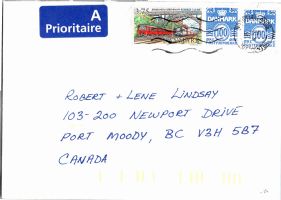 A
Prioritaire
DANMARK
DANMARK
ROBERT + LENE LINDSAY
103-200 NEWPORT DRIVE
PORT MOODY, BC V3H 5B7
CANADA